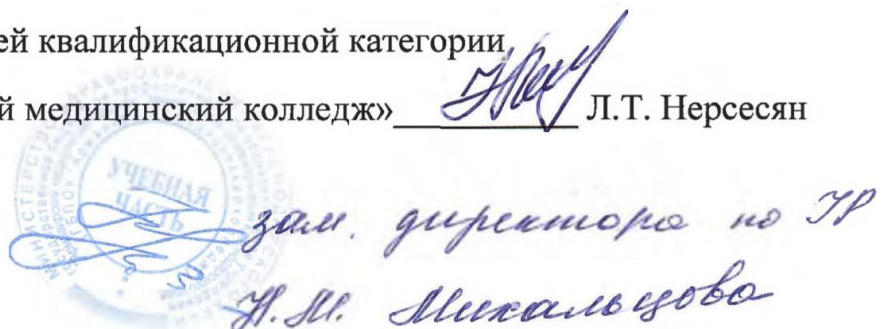 ей квалификационной категории
й медицинский колледж»__________ Л.Т. Нерсесян
УЧЕБНАЯ
ЧАСТЬ
зам. директора по УР
Н.М. Михальцова